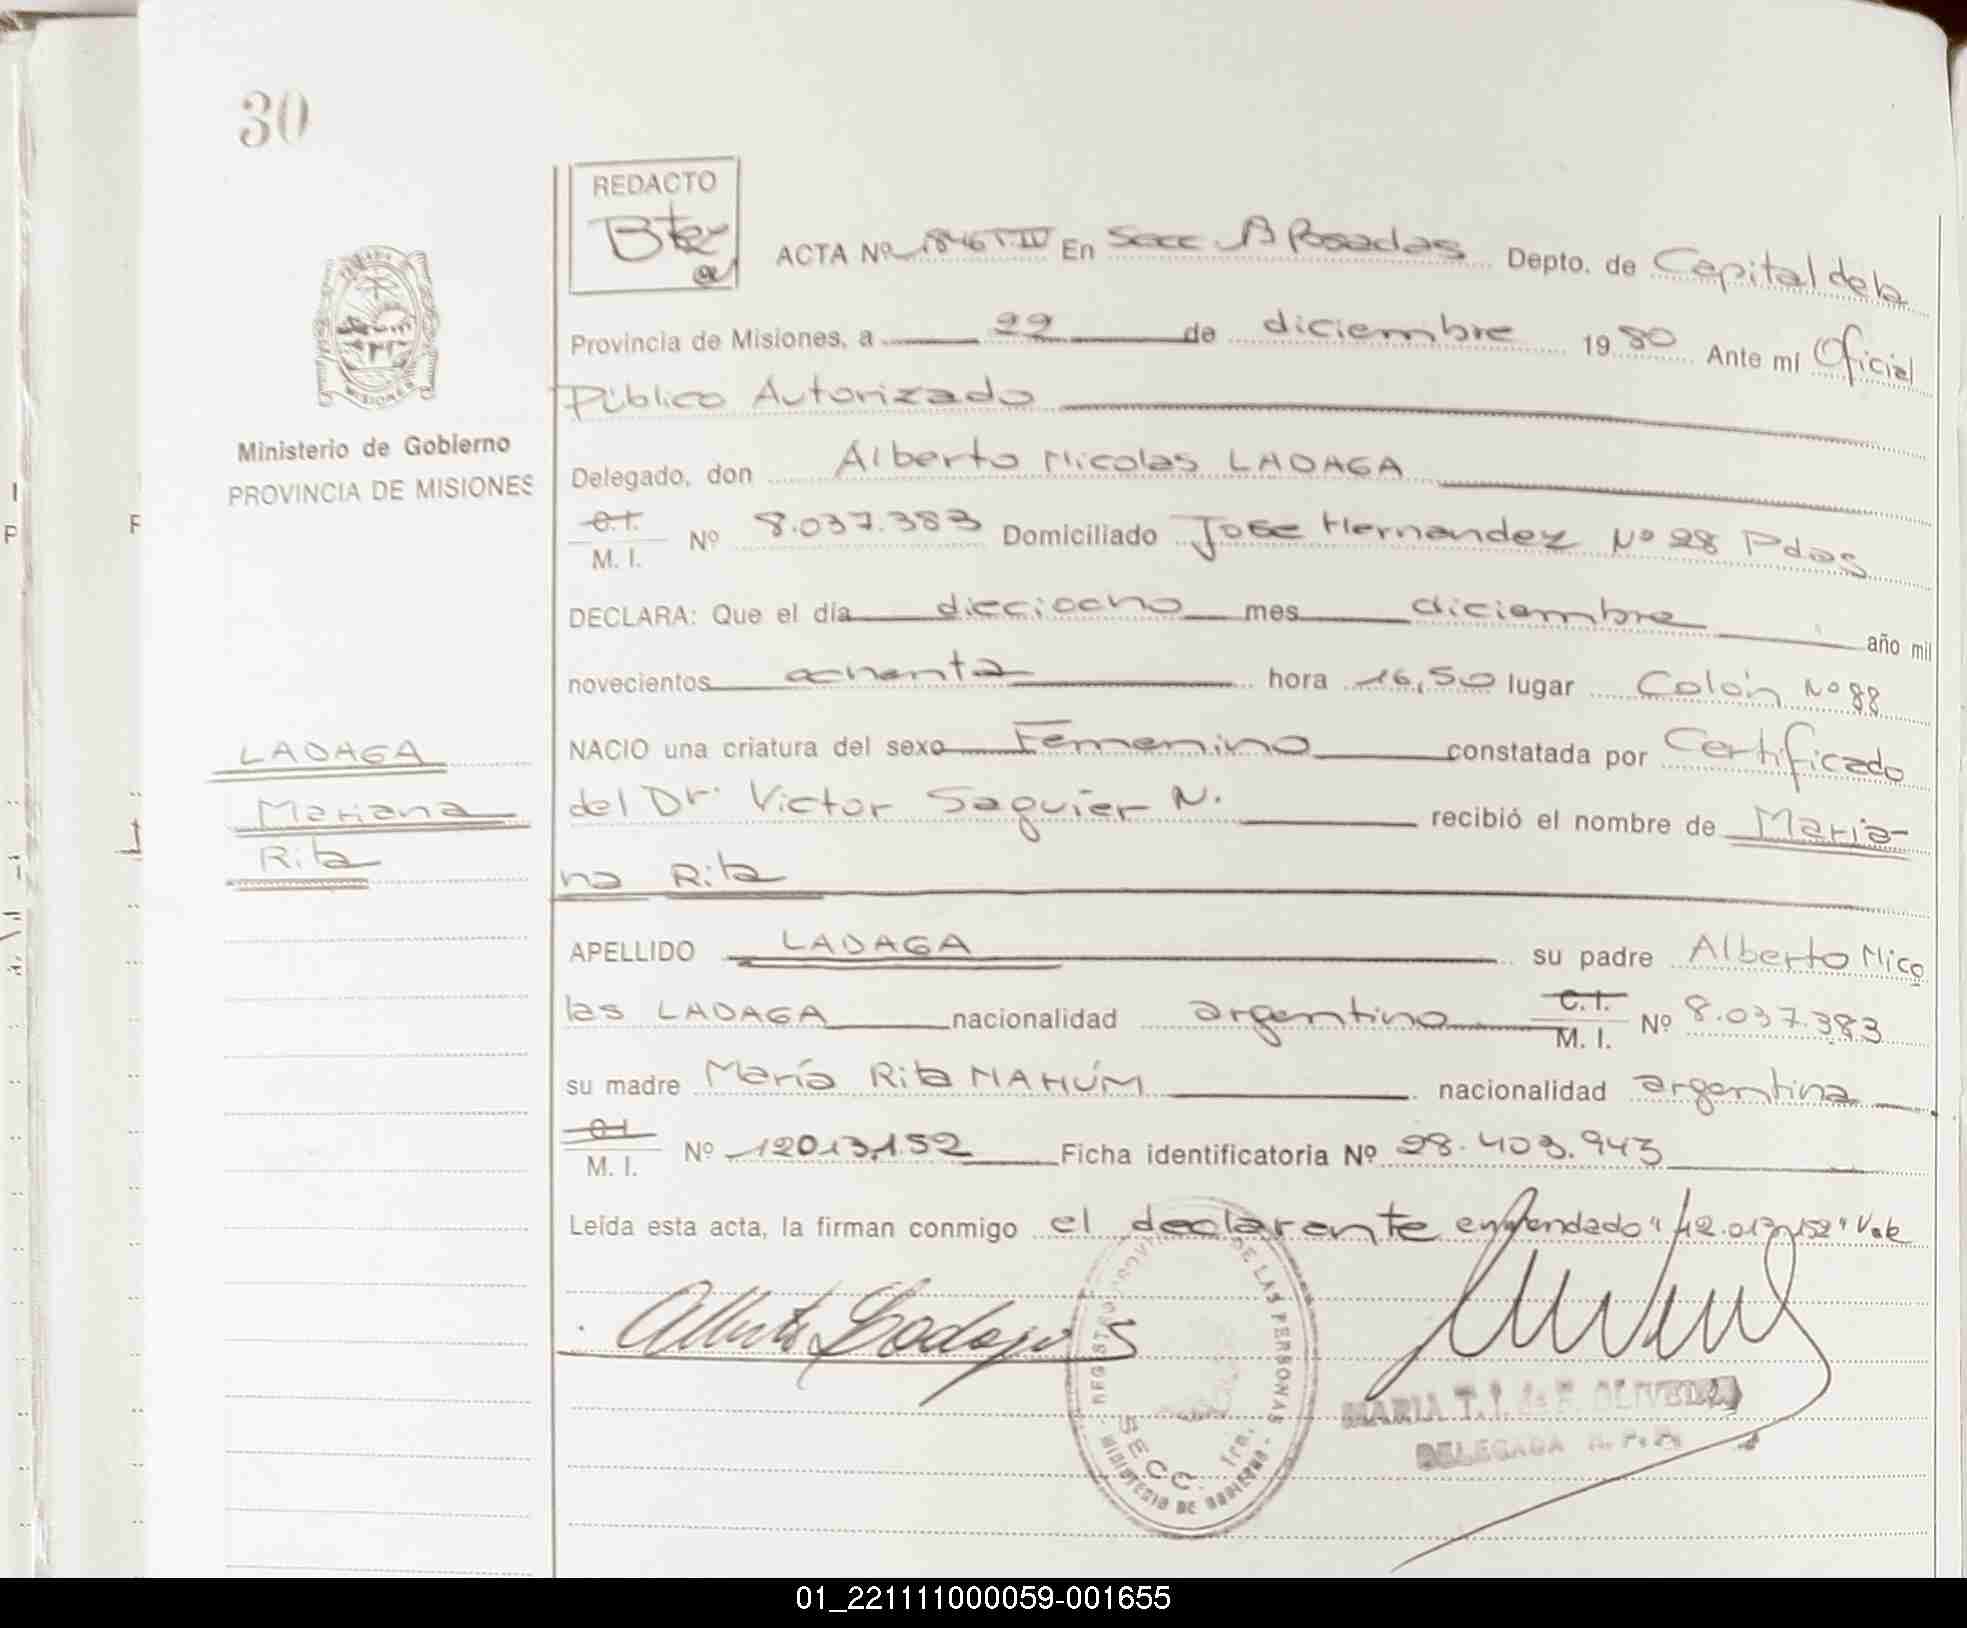 30
REDACTO
ACTA Nº 1846 T.IV En Secc Posadas Depto. de Capital de la
Provincia de Misiones, a 22 de diciembre 1980 Ante mí Oficial
Público Autorizado
Ministerio de Gobierno
PROVINCIA DE MISIONES
Delegado, don Alberto Nicolas LADAGA
C.I.
M. I. Nº 8.037.383 Domiciliado Jose Hernandez Nº 28 Pdas
DECLARA: Que el día dieciocho mes diciembre año mil
novecientos ochenta hora 16,50 lugar Colón Nº 88
LADAGA
Mariana
Rita
NACIO una criatura del sexo Femenino constatada por Certificado
del Dr. Victor Saguier N. recibió el nombre de Maria-
na Rita
APELLIDO LADAGA su padre Alberto Nico
las LADAGA nacionalidad argentino C.I. M. I. Nº 8.037.383
su madre María Rita NAHÚM nacionalidad argentina
C.I.
M. I. Nº 12013.152 Ficha identificatoria Nº 28.403.943
Leída esta acta, la firman conmigo el declarente enmendado "12.013.152" Vale
Alberto Ladaga
REGISTRO PROVINCIAL DE LAS PERSONAS
SECC. 1ra.
MINISTERIO DE GOBIERNO
MARIA T. I. de F. OLIVEIRA
DELEGADA R. P. P.
01_221111000059-001655